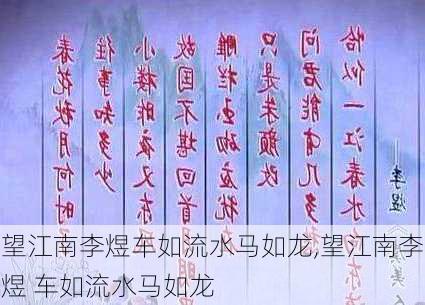 春花秋月何时
往事知多少
小楼昨夜又东
故国不堪回首月明
雕栏玉砌应犹在
只是朱颜改
问君能有几多
恰似一江春水向东
——李煜
望江南李煜车如流水马如龙,望江南李
煜 车如流水马如龙